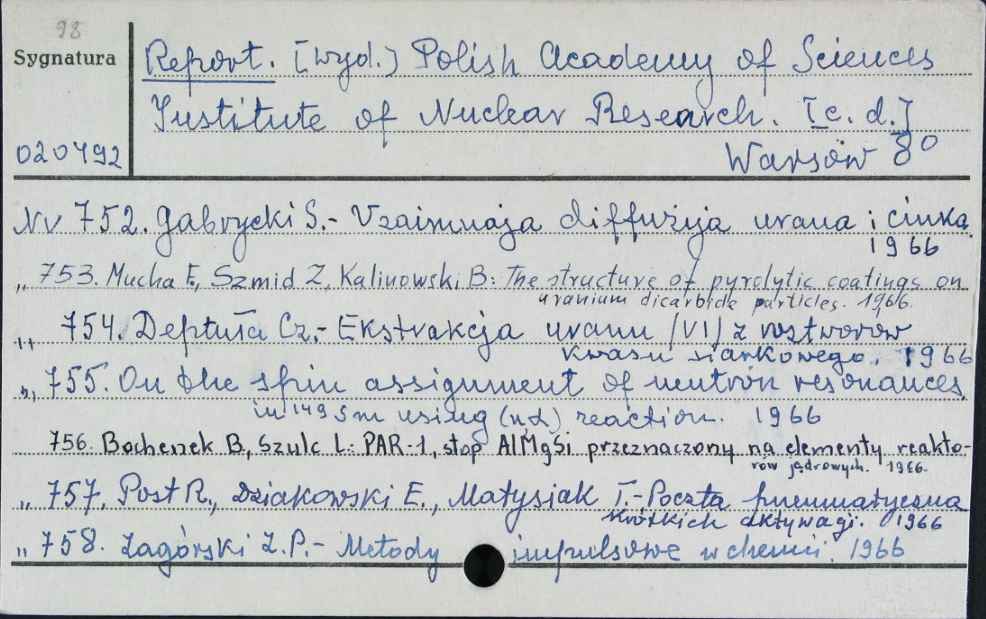 98
Sygnatura
Report. [wyd.] Polish Academy of Sciences
Institute of Nuclear Research. [c. d.]
020492
Warsow 8°
Nr 752. Gabrycki S.- Vzaimnaja diffuzija urana i cinka
1966
„ 753. Mucha F., Szmid Z, Kalinowski B: The structure of pyrolytic coatings on
uranium dicarbide particles. 1966.
„ 754. Deptuła Cz.- Ekstrakcja uranu (VI) z roztworów
kwasu siarkowego. 1966
„ 755. On the spin assignment of neutron resonances
in 149 Sm using (nα) reaction. 1966
756. Bochenek B., Szulc L: PAR-1, stop AlMgSi przeznaczony na elementy reakto-
rów jądrowych. 1966.
„ 757. Post R., Dziakowski E., Matysiak T.- Poczta pneumatyczna
krótkich aktywacji. 1966
„ 758. Zagórski Z.P.- Metody impulsowe w chemii. 1966